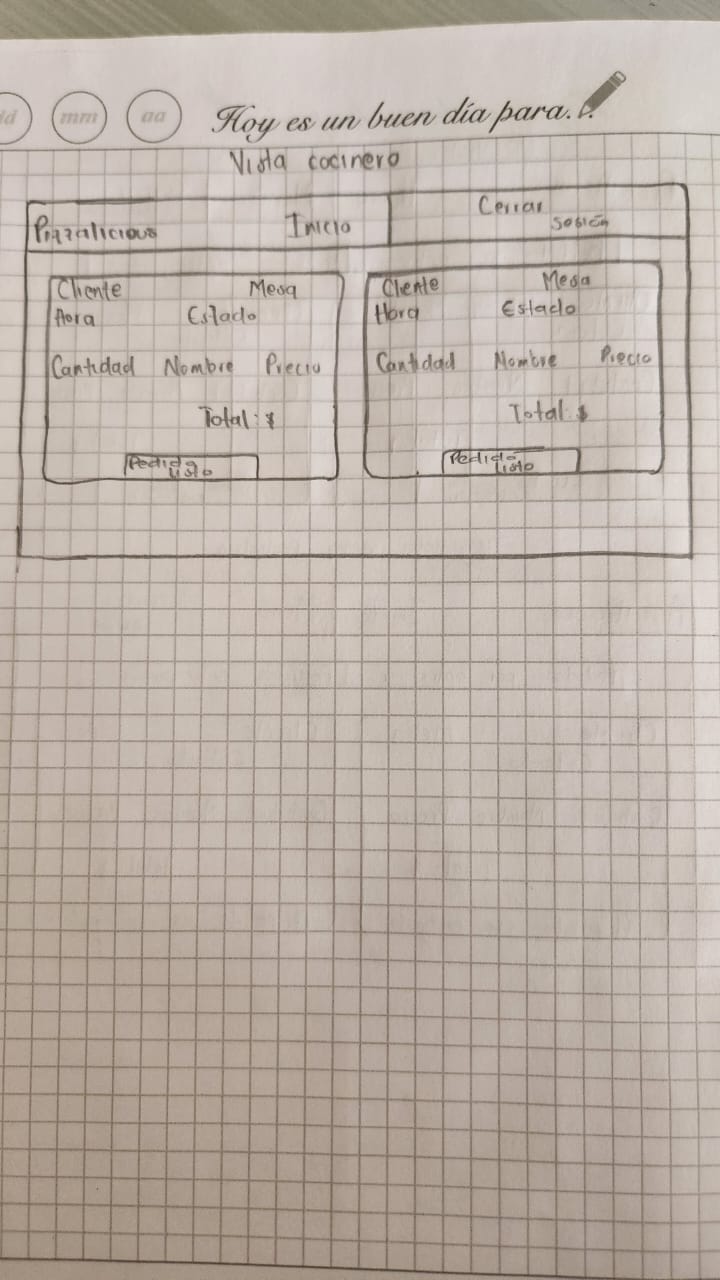 dd mm aa Hoy es un buen día para...
Vista cocinero
Pizzalicious Inicio Cerrar
sesión
Cliente Mesa
Hora Estado
Cantidad Nombre Precio
Total: $
Pedido
Listo
Cliente Mesa
Hora Estado
Cantidad Nombre Precio
Total: $
Pedido
Listo